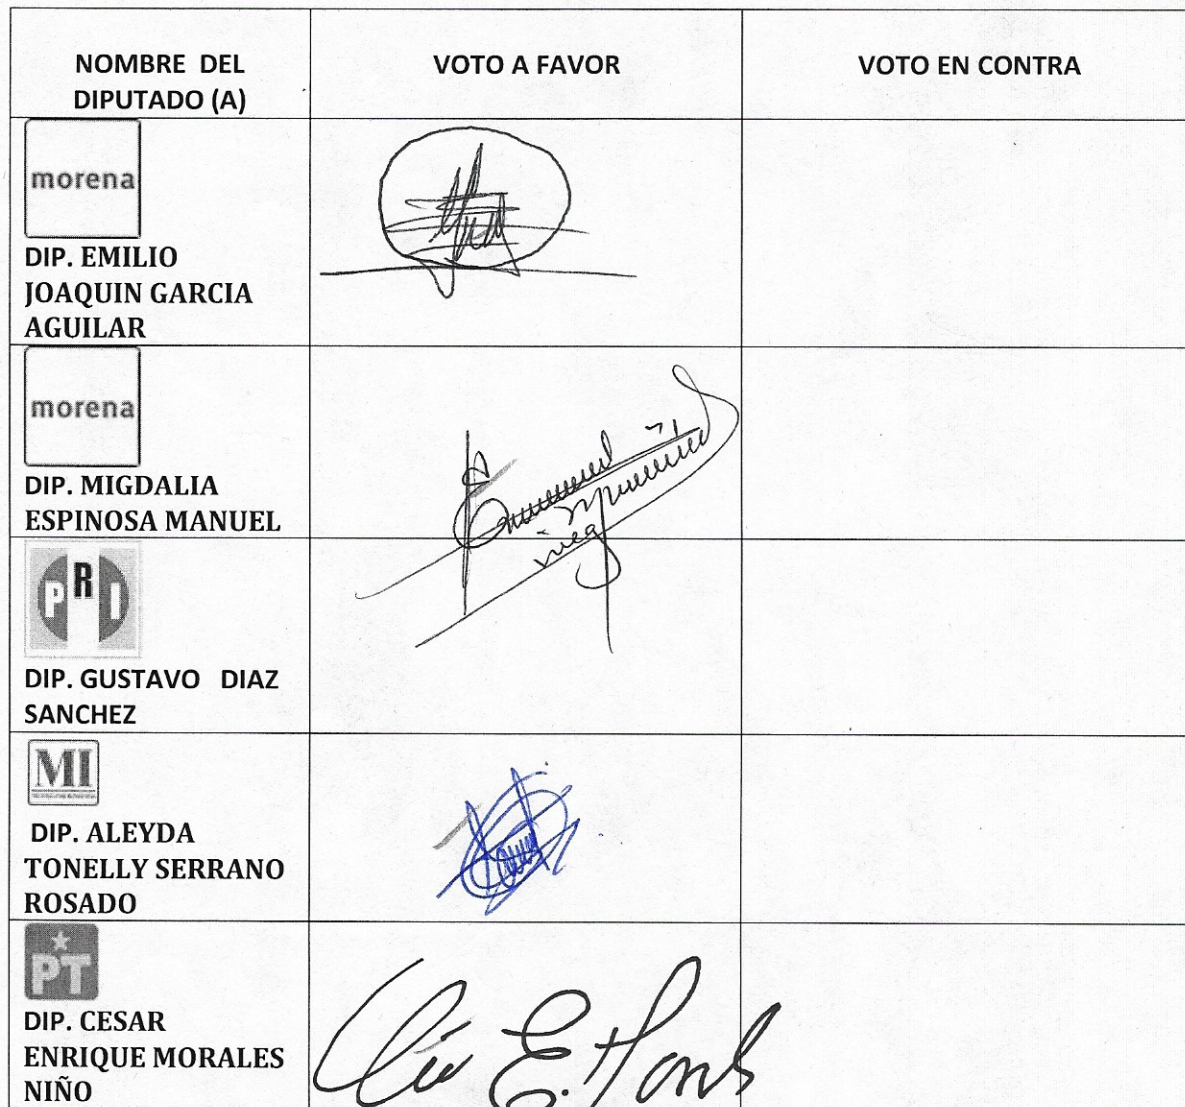 NOMBRE DEL
DIPUTADO (A)
VOTO A FAVOR
VOTO EN CONTRA
morena
DIP. EMILIO
JOAQUIN GARCIA
AGUILAR
morena
DIP. MIGDALIA
ESPINOSA MANUEL
PRI
DIP. GUSTAVO DIAZ
SANCHEZ
MI
DIP. ALEYDA
TONELLY SERRANO
ROSADO
PT
DIP. CESAR
ENRIQUE MORALES
NIÑO